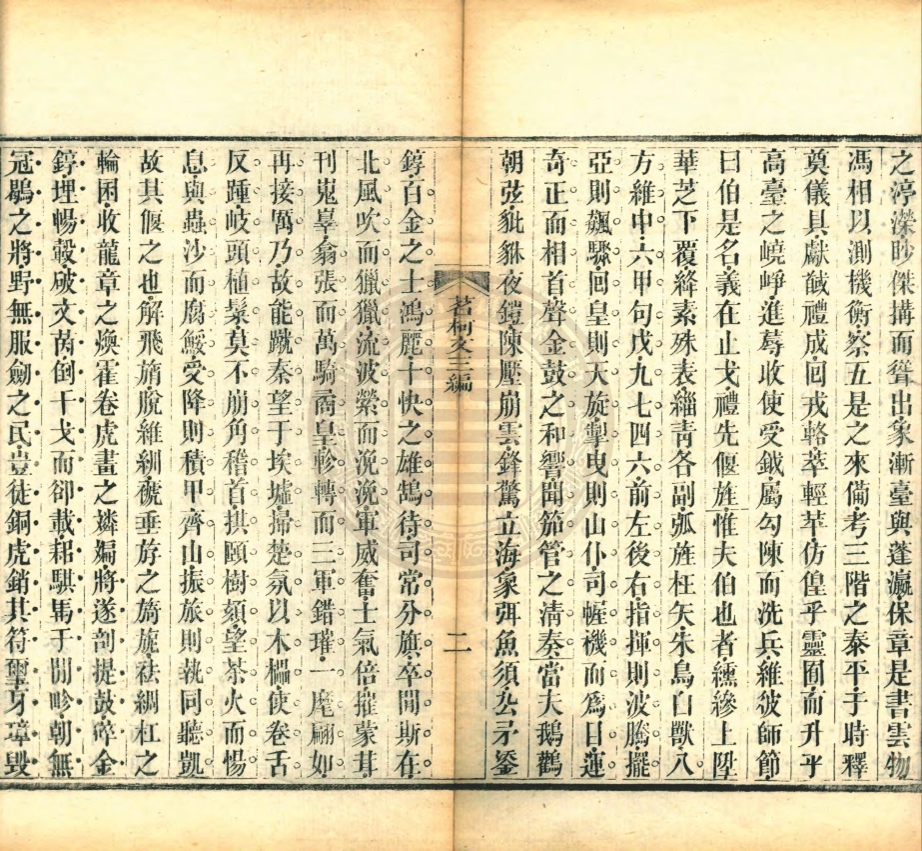 之渟濴眇傑搆而聳出象漸臺與蓬瀛保章是書雲物
馮相以測機衡察五是之來備考三階之泰平于時釋
奠儀具獻馘禮成回戎輅萃輕苹仿偟乎靈囿而升乎
高臺之嶢崢進蓐收使受鉞屬勾陳而洗兵維彼師節
曰伯是名義在止戈禮先偃旌惟夫伯也者纁縿上陞
華芝下覆絳素殊表緇靑各副弧旌枉矢朱鳥白獸八
方維申六甲句戊九七四六前左後右指揮則波騰擺
亞則飆驟回皇則天旋掣曳則山仆司幄機而爲日運
奇正而相首聲金鼓之和響聞笳管之清奏當夫鵝鸛
朝弦豼貅夜鎧陳壓崩雲鋒驚立海象弭魚須厹矛鋈
茗柯文三編
二
錞百金之士鴻麗十快之雄鵠待司常分旗卒閒斯在
北風吹而獵獵流波縈而浼浼軍威奮士氣倍摧蒙茸
刊嵬辠翕張而萬騎矞皇軫轉而三軍錯璀一麾翩如
再接厲乃故能蹴秦望于埃壒掃楚氛以木欐使卷舌
反踵岐頭植髮莫不崩角稽首拱頤樹頦望荼火而惕
息與蟲沙而腐鮾受降則積甲齊山振旅則執同聽凱
故其偃之也解飛旓脫維緉褫垂斿之旖旎袪綢杠之
輪囷收龍章之煥霍卷虎畫之㷠斒將遂剖提鼓碎金
錞埋暢轂破文茵倒干戈而卻載耜騏馬于閒畛朝無
冠鶡之將野無服劒之民豈徒銅虎銷其符璽牙璋毀